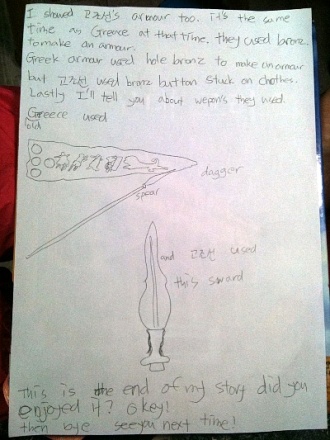 I showed 고조선's armour too. it's the same
time as Greece at that time. they used bronz
to make an armour.
Greek armour used hole bronz to make an armour
but 고조선 used bronz button stuck on clothes.
Lastly I'll tell you about wepon's they used.
Greece used
dagger
spear
and 고조선 used
this sword
This is the end of my story did you
enjoyed it? Okey!
then bye see you next time!